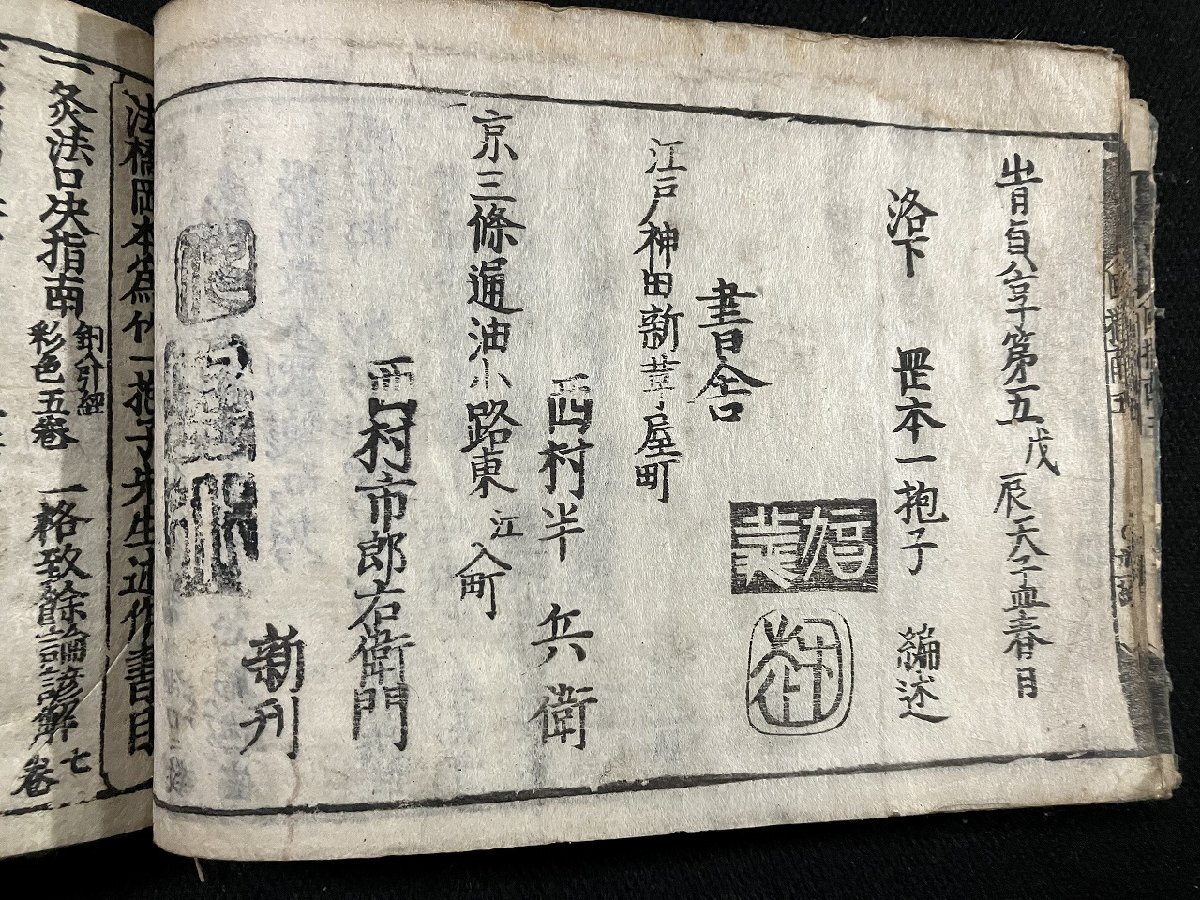 旹貞享第五戊辰天孟春日
洛下 岡本一抱子 編述
書舎
江戸神田新革屋町
西村半兵衛
京三條通油小路東江入町
西村市郎右衛門
新刊
法橋岡本爲竹一抱子先生述作書目
一灸法口决指南
彩色五巻
一格致餘論諺解 七巻